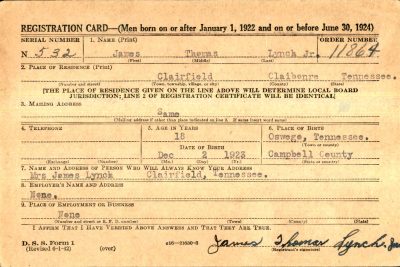 REGISTRATION CARD—(Men born on or after January 1, 1922 and on or before June 30, 1924)
SERIAL NUMBER 1. NAME (Print) ORDER NUMBER
N 532 James Thomas Lynch Jr. 11864
(First) (Middle) (Last)
2. PLACE OF RESIDENCE (Print)
Clairfield Claiborne Tennessee.
(Number and street) (Town, township, village, or city) (County) (State)
[THE PLACE OF RESIDENCE GIVEN ON THE LINE ABOVE WILL DETERMINE LOCAL BOARD
JURISDICTION; LINE 2 OF REGISTRATION CERTIFICATE WILL BE IDENTICAL]
3. MAILING ADDRESS
Same
(Mailing address if other than place indicated on line 2. If same insert word same)
4. TELEPHONE 5. AGE IN YEARS 6. PLACE OF BIRTH
18 Oswego, Tennessee.
DATE OF BIRTH (Town or county)
Dec 2 1923 Campbell County
(Exchange) (Number) (Mo.) (Day) (Yr.) (State or country)
7. NAME AND ADDRESS OF PERSON WHO WILL ALWAYS KNOW YOUR ADDRESS
Mrs James Lynch Clairfield, Tennessee.
8. EMPLOYER'S NAME AND ADDRESS
None.
9. PLACE OF EMPLOYMENT OR BUSINESS
None
(Number and street or R. F. D. number) (Town) (County) (State)
I AFFIRM THAT I HAVE VERIFIED ABOVE ANSWERS AND THAT THEY ARE TRUE.
D. S. S. Form 1
(Revised 6-1-42) (over) 16—21630-2 James Thomas Lynch.
(Registrant's signature)